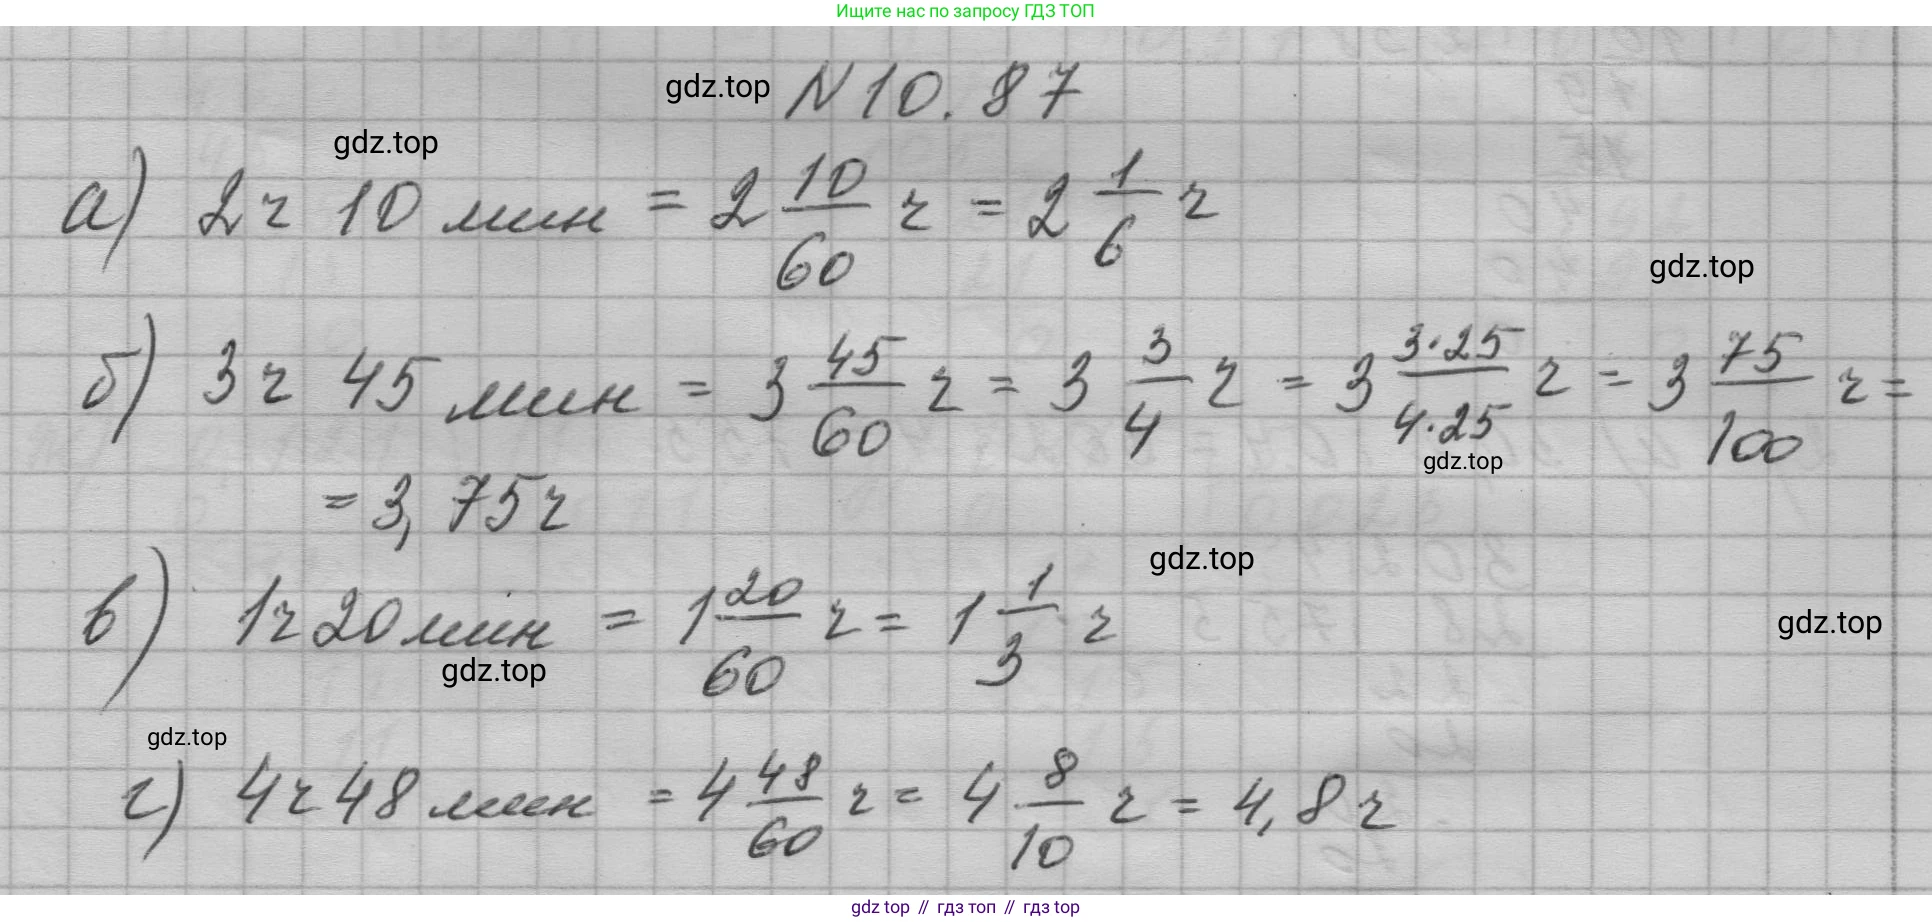 Ищите нас по запросу ГДЗ ТОП
gdz.top N 10.87
gdz.top
а) 2ч 10 мин = 2 10/60 ч = 2 1/6 ч
gdz.top
б) 3ч 45 мин = 3 45/60 ч = 3 3/4 ч = 3 3·25/4·25 ч = 3 75/100 ч =
gdz.top
= 3,75ч
gdz.top
в) 1ч 20 мин = 1 20/60 ч = 1 1/3 ч
gdz.top
gdz.top
gdz.top
г) 4ч 48 мин = 4 48/60 ч = 4 8/10 ч = 4,8 ч
gdz top // гдз топ // гдз top